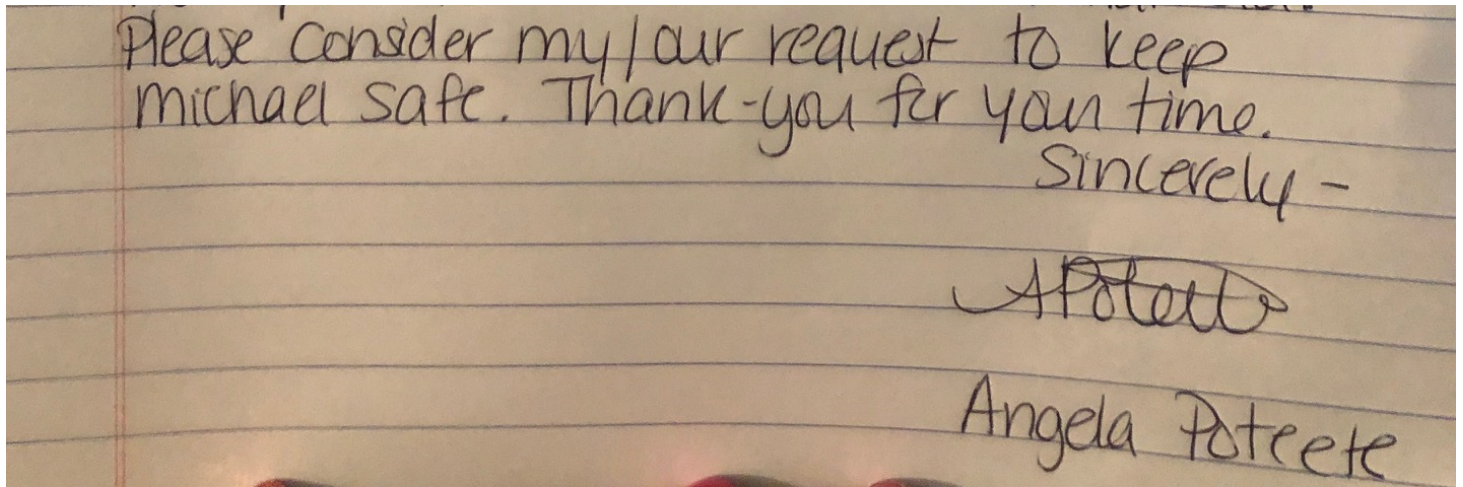 Please Consider my/our request to keep
michael safe. Thank-you for your time.
Sincerely -
APoteete
Angela Poteete